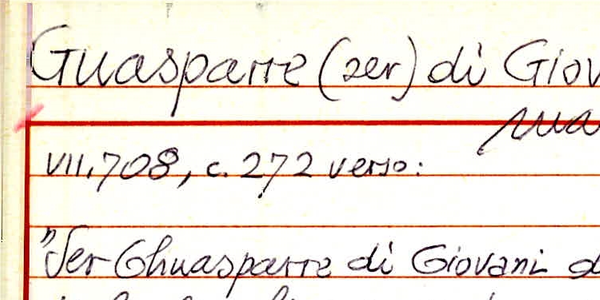 Guasparre (ser) di Giov
VII, 708, c. 272 verso:
"Ser Ghuasparre di Giovani d